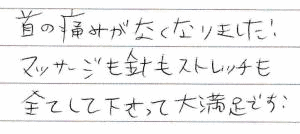 首の痛めがなくなりました!
マッサージも針もストレッチも
全てして下さって大満足です!